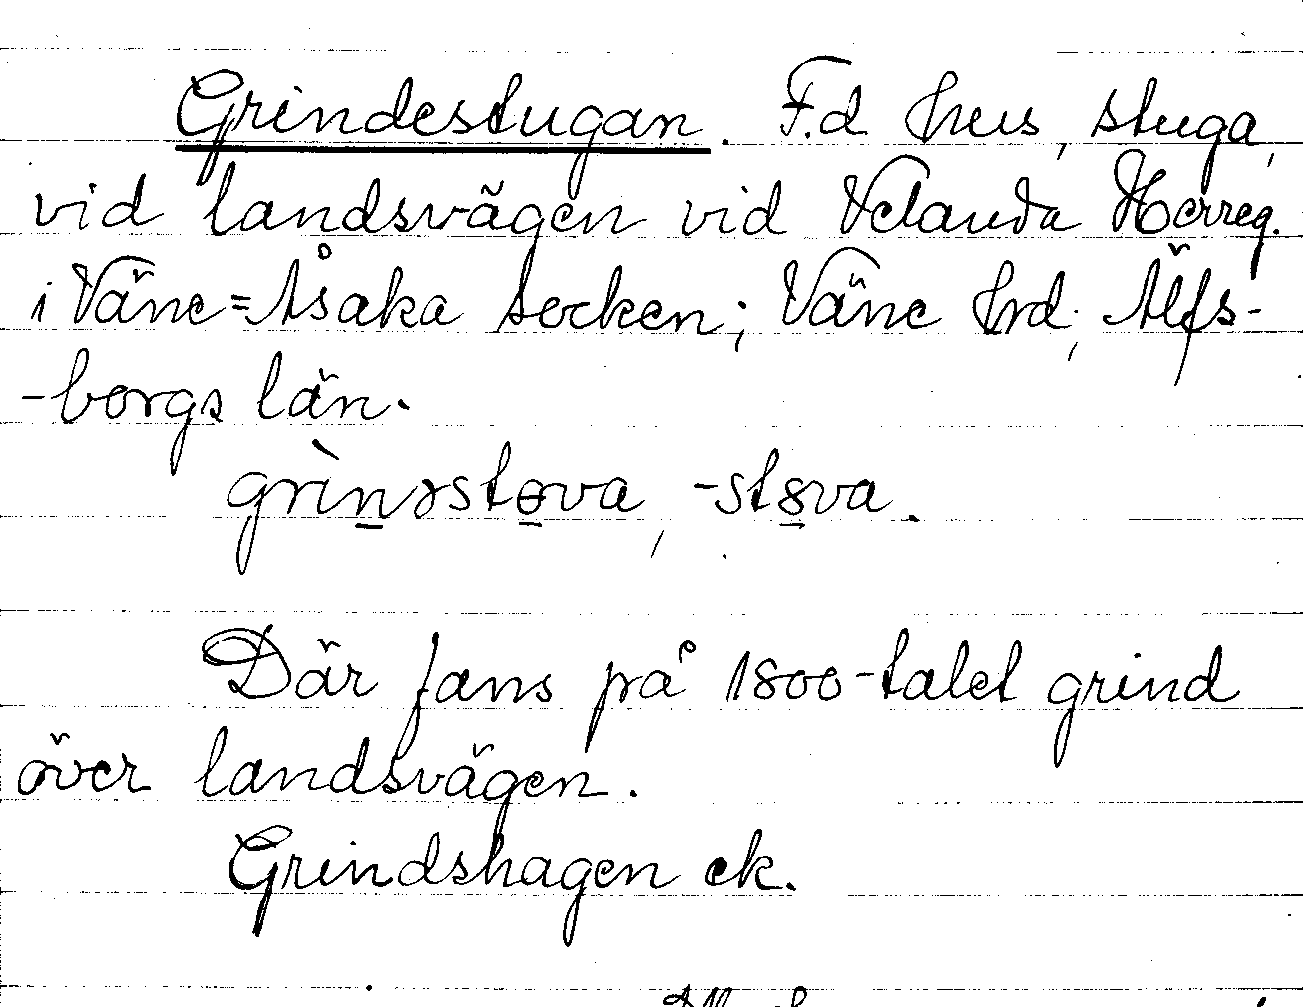 Grindestugan. F.d hus, stuga,
vid landsvägen vid Velanda Herreg.
i Väne=Åsaka socken; Väne hrd; Älfs-
-borgs län.
grìnəstɵva, -st8va.
Där fans på 1800-talet grind
över landsvägen.
Grindshagen ek.